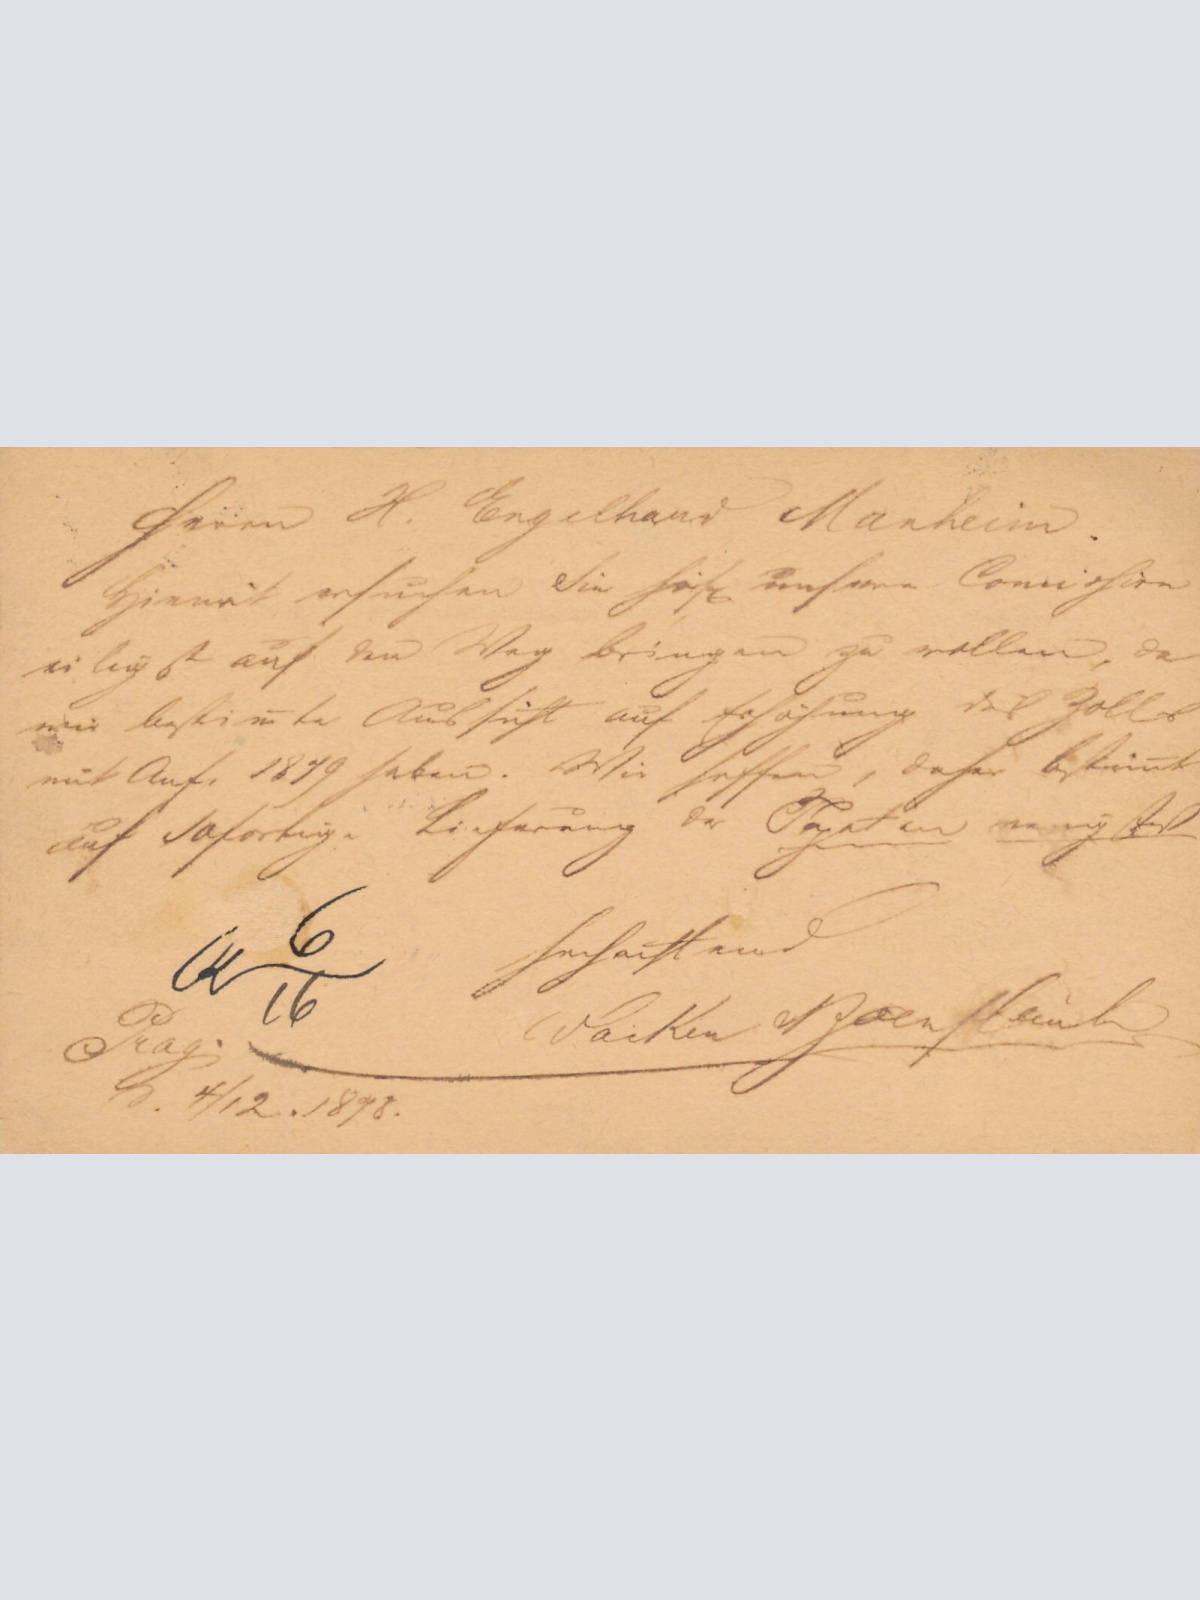 Herrn H. Engelhard Manheim.
Hiermit ersuchen Sie höfl. unsere Commission
eiligst auf den Weg bringen zu wollen, da
wir bestim̅te Aussicht auf Erhöhung des Zolls
mit Anf. 1879 haben. Wir hoffen, daher bestim̅t
auf sofortige Lieferung der Tapeten wenigstens
6
16
hochachtend
Prag.
d. 4/12. 1878.